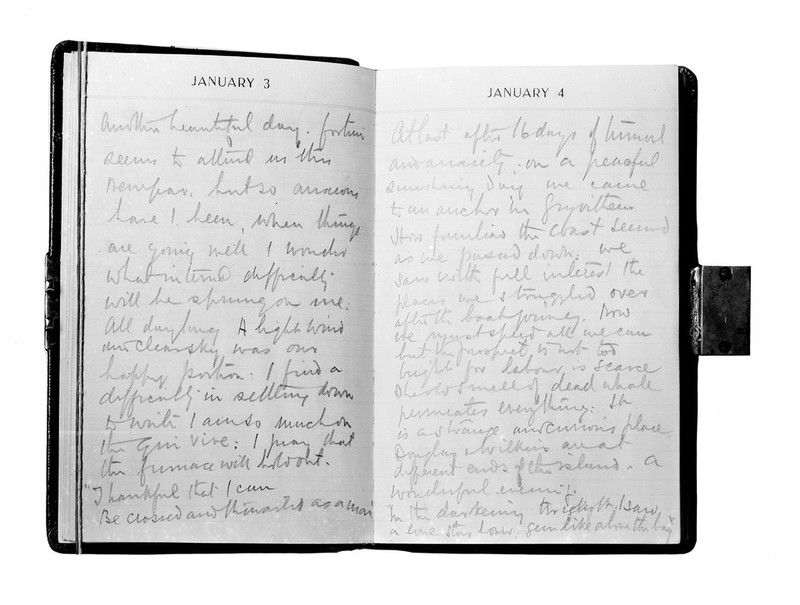 JANUARY 3
Another beautiful day. fortune
seems to attend us this
New year. but so anxious
have I been, when things
are going well I wonder
what internal difficulty
will be sprung on me.
All day long A light wind
and clear sky was our
happy portion. I find a
difficulty in settling down
to write I am so much on
the Qui vive: I pray that
the furnace will hold out.
"Thankful that I can
Be crossed and thwarted as a man
JANUARY 4
At last after 16 days of turmoil
and anxiety. on a peaceful
sunshiny day we came
to an anchor in Gryvitken
How familiar the coast seemed
as we passed down. We
saw with full interest the
places we struggled over
after the boat journey. Now
we must speed all we can
but the prospect is not too
bright for labour is scarce
The old smell of dead whale
permeates everything. It
is a strange and curious place.
Douglas & Wilkins are at
different ends of the island. A
wonderful evening.
"In the darkening twilight I saw
a lone star hover. gem like above the bay